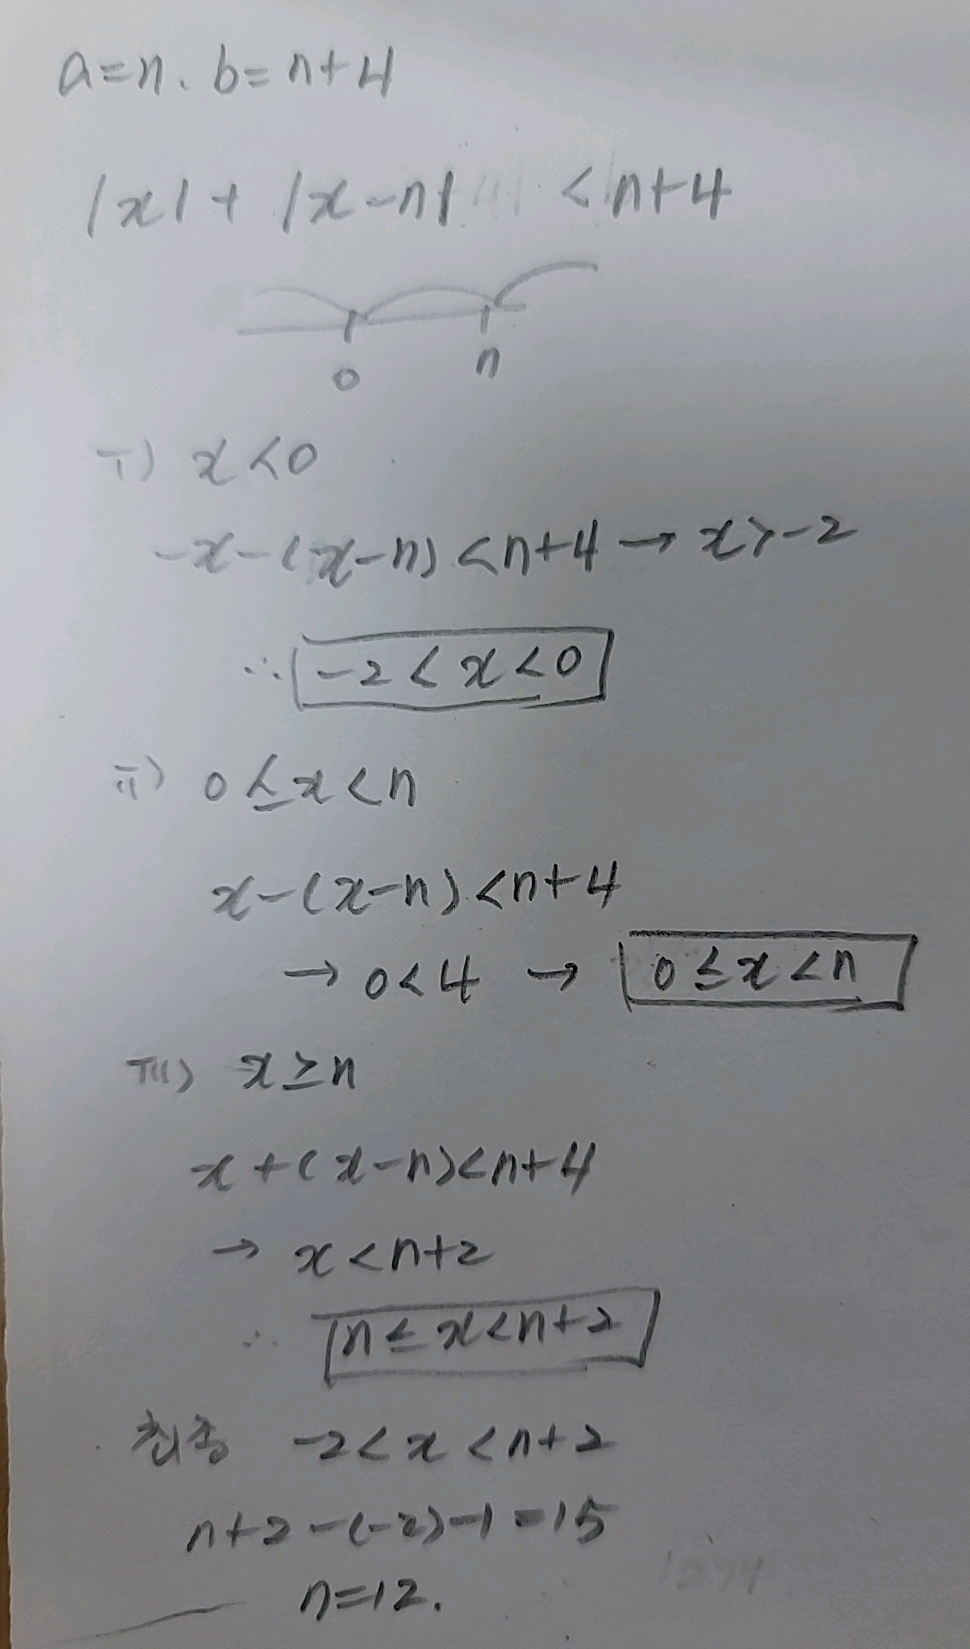 a=n. b=n+4
|x|+|x-n| <n+4
0 n
i) x<0
-x-(x-n)<n+4→x>-2
∴ -2<x<0
ii) 0≤x<n
x-(x-n)<n+4
→0<4 → 0≤x<n
iii) x≥n
x+(x-n)<n+4
→ x<n+2
∴ n≤x<n+2
최종 -2<x<n+2
n+2-(-2)-1=15
n=12.